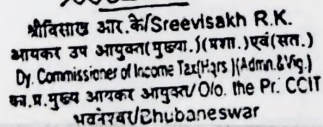 श्रीविसाख आर.के/Sreevisakh R.K.
आयकर उप आयुक्त(मुख्या.)(प्रशा.)एवं(सत.)
Dy. Commissioner of Income Tax(Hqrs)(Admn.&Vig.)
का.प्र.मुख्य आयकर आयुक्त/O/o. the Pr. CCIT
भुवनेश्वर/Bhubaneswar